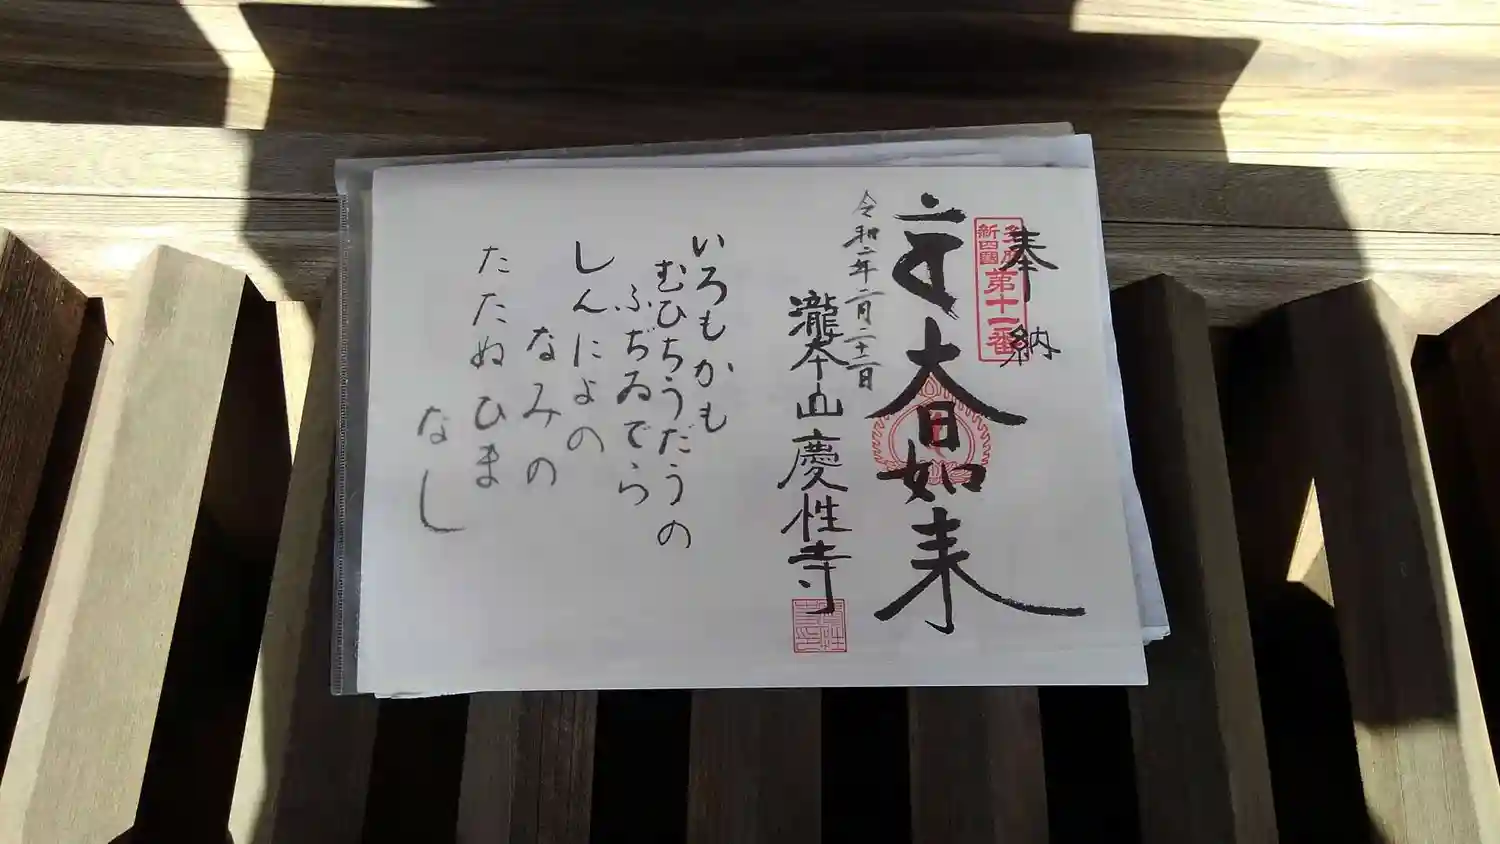 奉納
新四国
第十一番
大日如来
令和二年二月二十二日
瀧本山慶性寺
いろもかも
むひちうだうの
ふぢゐでら
しんによの
なみの
たたぬひま
なし